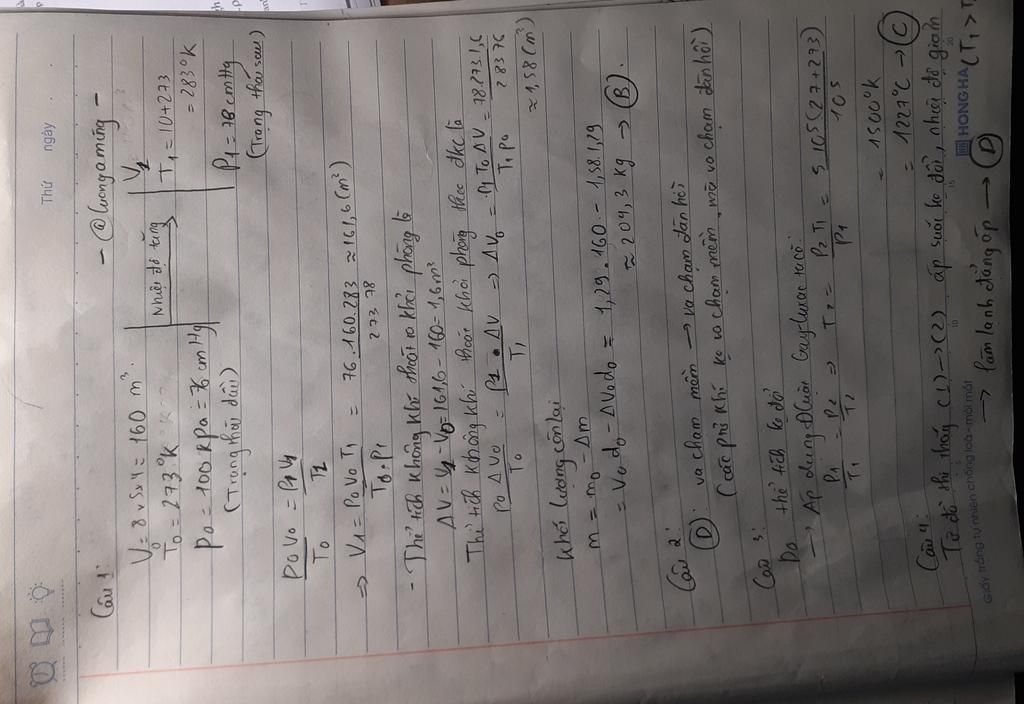 Thứ ngày
- @luongaming -
Câu 1:
V₀ = 8 x 5 x 4 = 160 m³
T₀ = 273°K
P₀ = 100 KPa = 76 cmHg
(Trạng thái đầu)
Nhiệt độ tăng
V₁
T₁ = 10 + 273
= 283°K
P₁ = 78 cmHg
(Trạng thái sau)
P₀V₀/T₀ = P₁V₁/T₁
=> V₁ = P₀V₀T₁/T₀.P₁ = 76.160.283/273 78 ≈ 161,6 (m³)
- Thể tích không khí thoát ra khỏi phòng là
ΔV = V₁ - V₀ = 161,6 - 160 = 1,6m³
Thể tích không khí thoát khỏi phòng theo đkc là
P₀ΔV₀/T₀ = P₁.ΔV/T₁ => ΔV₀ = P₁T₀ΔV/T₁P₀ = 78.273.1,6/283 76
≈ 1,58 (m³)
Khối lượng còn lại
m = m₀ - Δm
= V₀d₀ - ΔV₀d₀ = 1,29.160 - 1,58.1,29
≈ 204,3 kg → (B).
Câu 2:
(D): va chạm mềm → va chạm đàn hồi
(các ptử khí ko va chạm mềm, mà va chạm đàn hồi)
Câu 3:
Do thể tích ko đổi
→ Áp dụng ĐLuật Gay-luxac ta có:
P₁/T₁ = P₂/T₂ => T₂ = P₂T₁/P₁ = 5.105(27+273)/105
= 1500°K
= 1227°C → (C)
Câu 4:
Từ đồ thị thấy (1) → (2) áp suất ko đổi, nhiệt độ giảm (T₁ >
→ làm lạnh đẳng áp → (D)
Giấy trắng tự nhiên chống loá - mỏi mắt
HONG HA